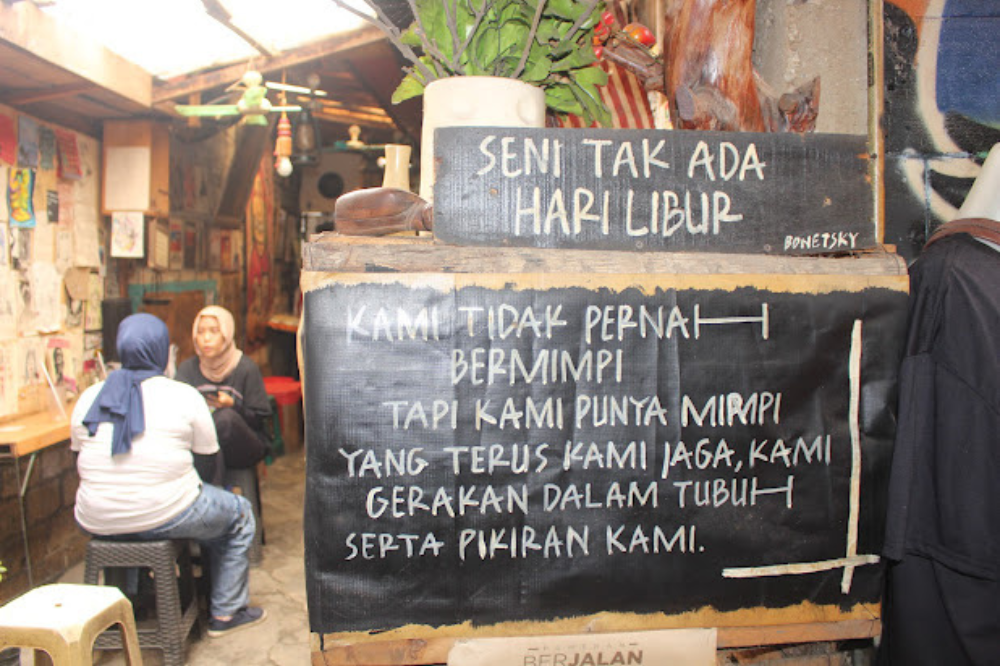 SENI TAK ADA
HARI LIBUR
BONETSKY
KAMI TIDAK PERNAH
BERMIMPI
TAPI KAMI PUNYA MIMPI
YANG TERUS KAMI JAGA, KAMI
GERAKAN DALAM TUBUH
SERTA PIKIRAN KAMI.
BERJALAN